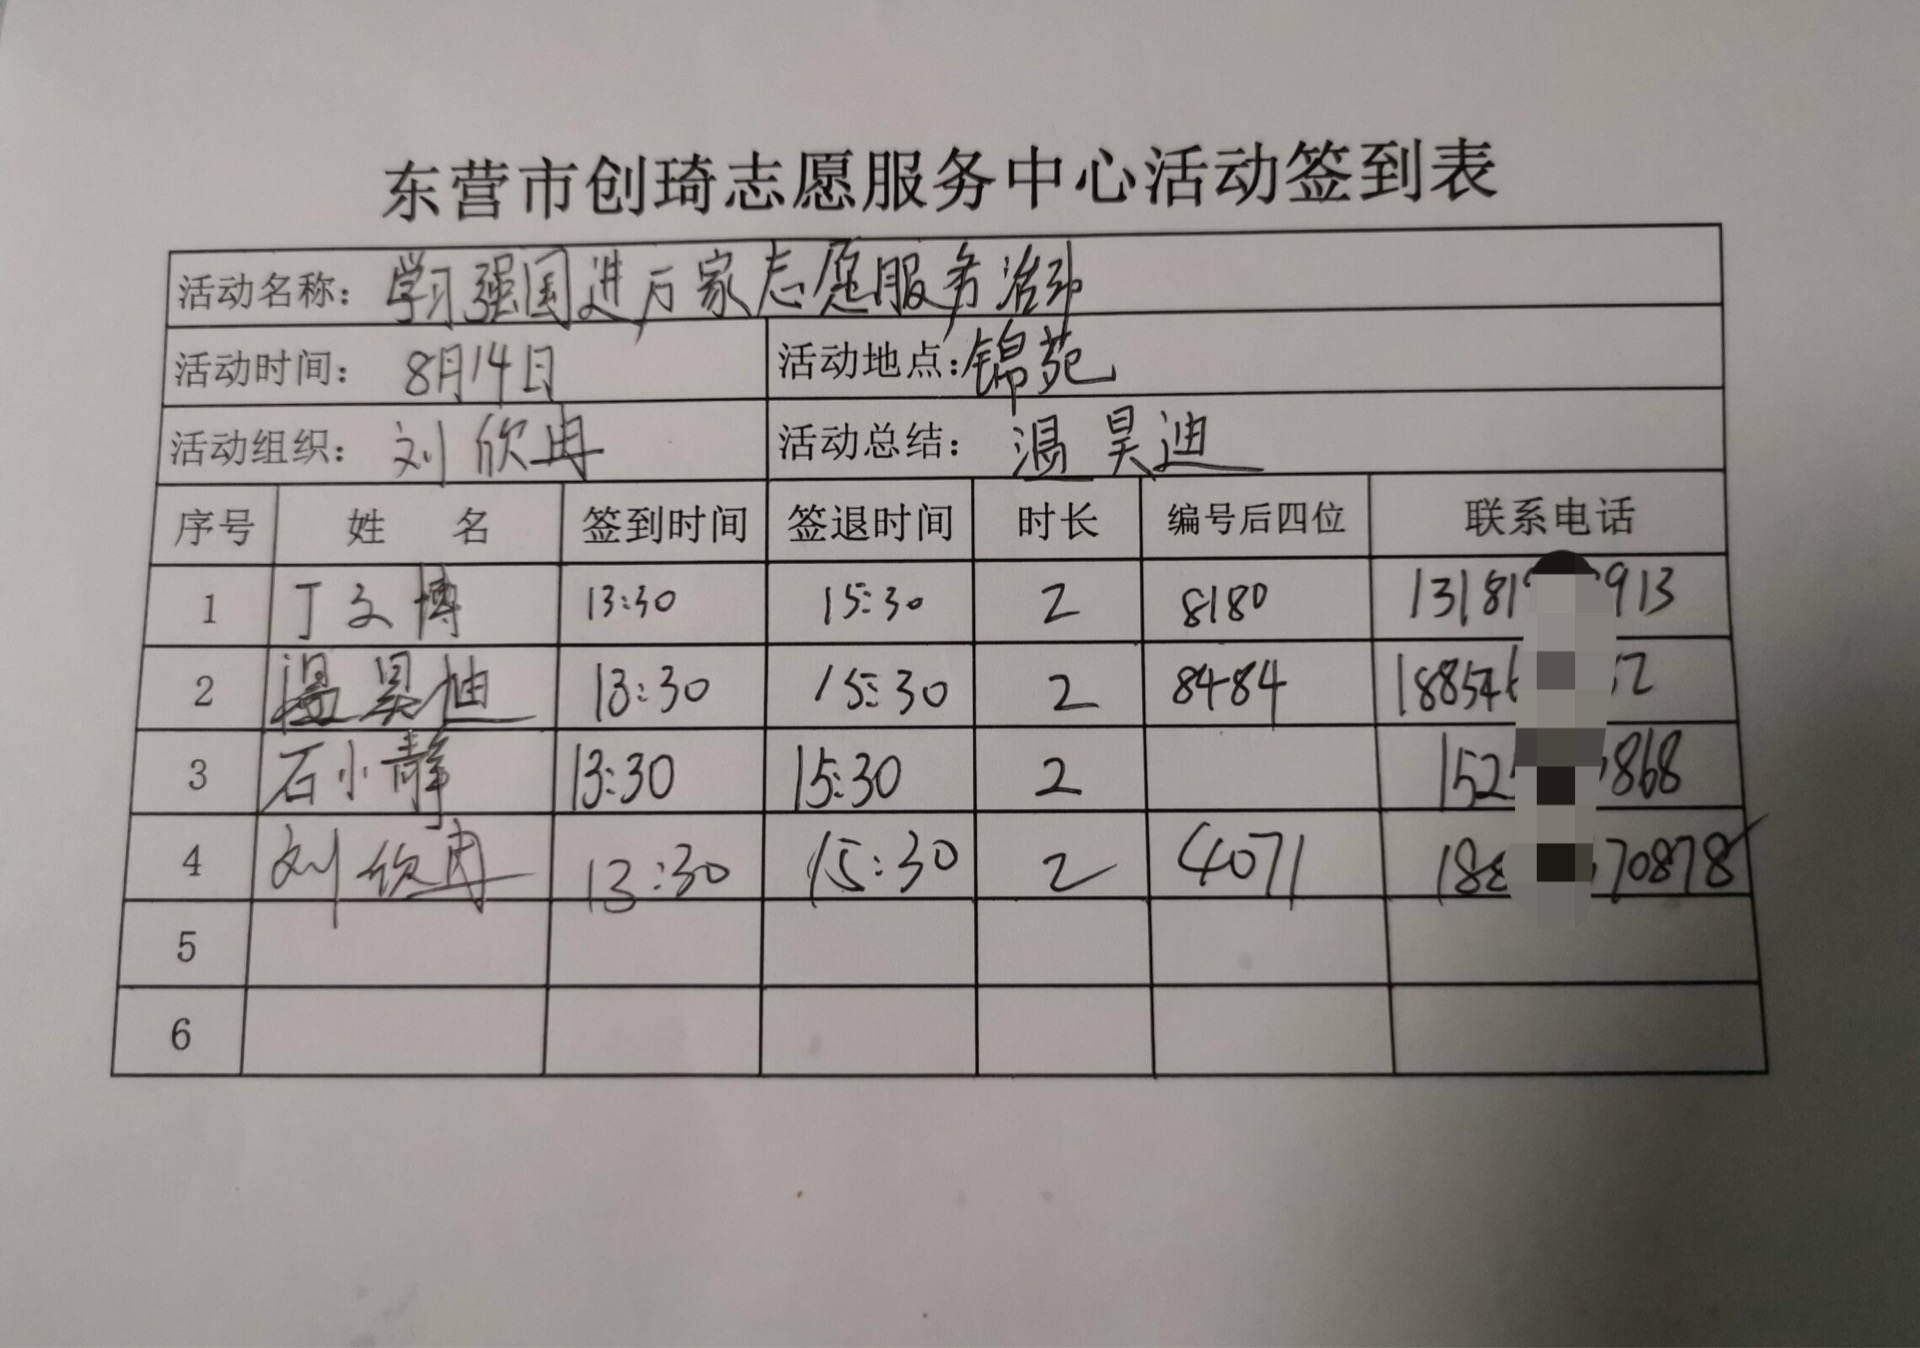 东营市创琦志愿服务中心活动签到表
活动名称：学习强国进万家志愿服务活动
活动时间：8月14日 活动地点：锦苑
活动组织：刘欣冉 活动总结：温昊迪
序号 姓 名 签到时间 签退时间 时长 编号后四位 联系电话
1 丁文博 13:30 15:30 2 8180 1318 913
2 温昊迪 13:30 15:30 2 8484 18854 2
3 石小静 13:30 15:30 2 152 868
4 刘欣冉 13:30 15:30 2 4071 18 70878
5
6